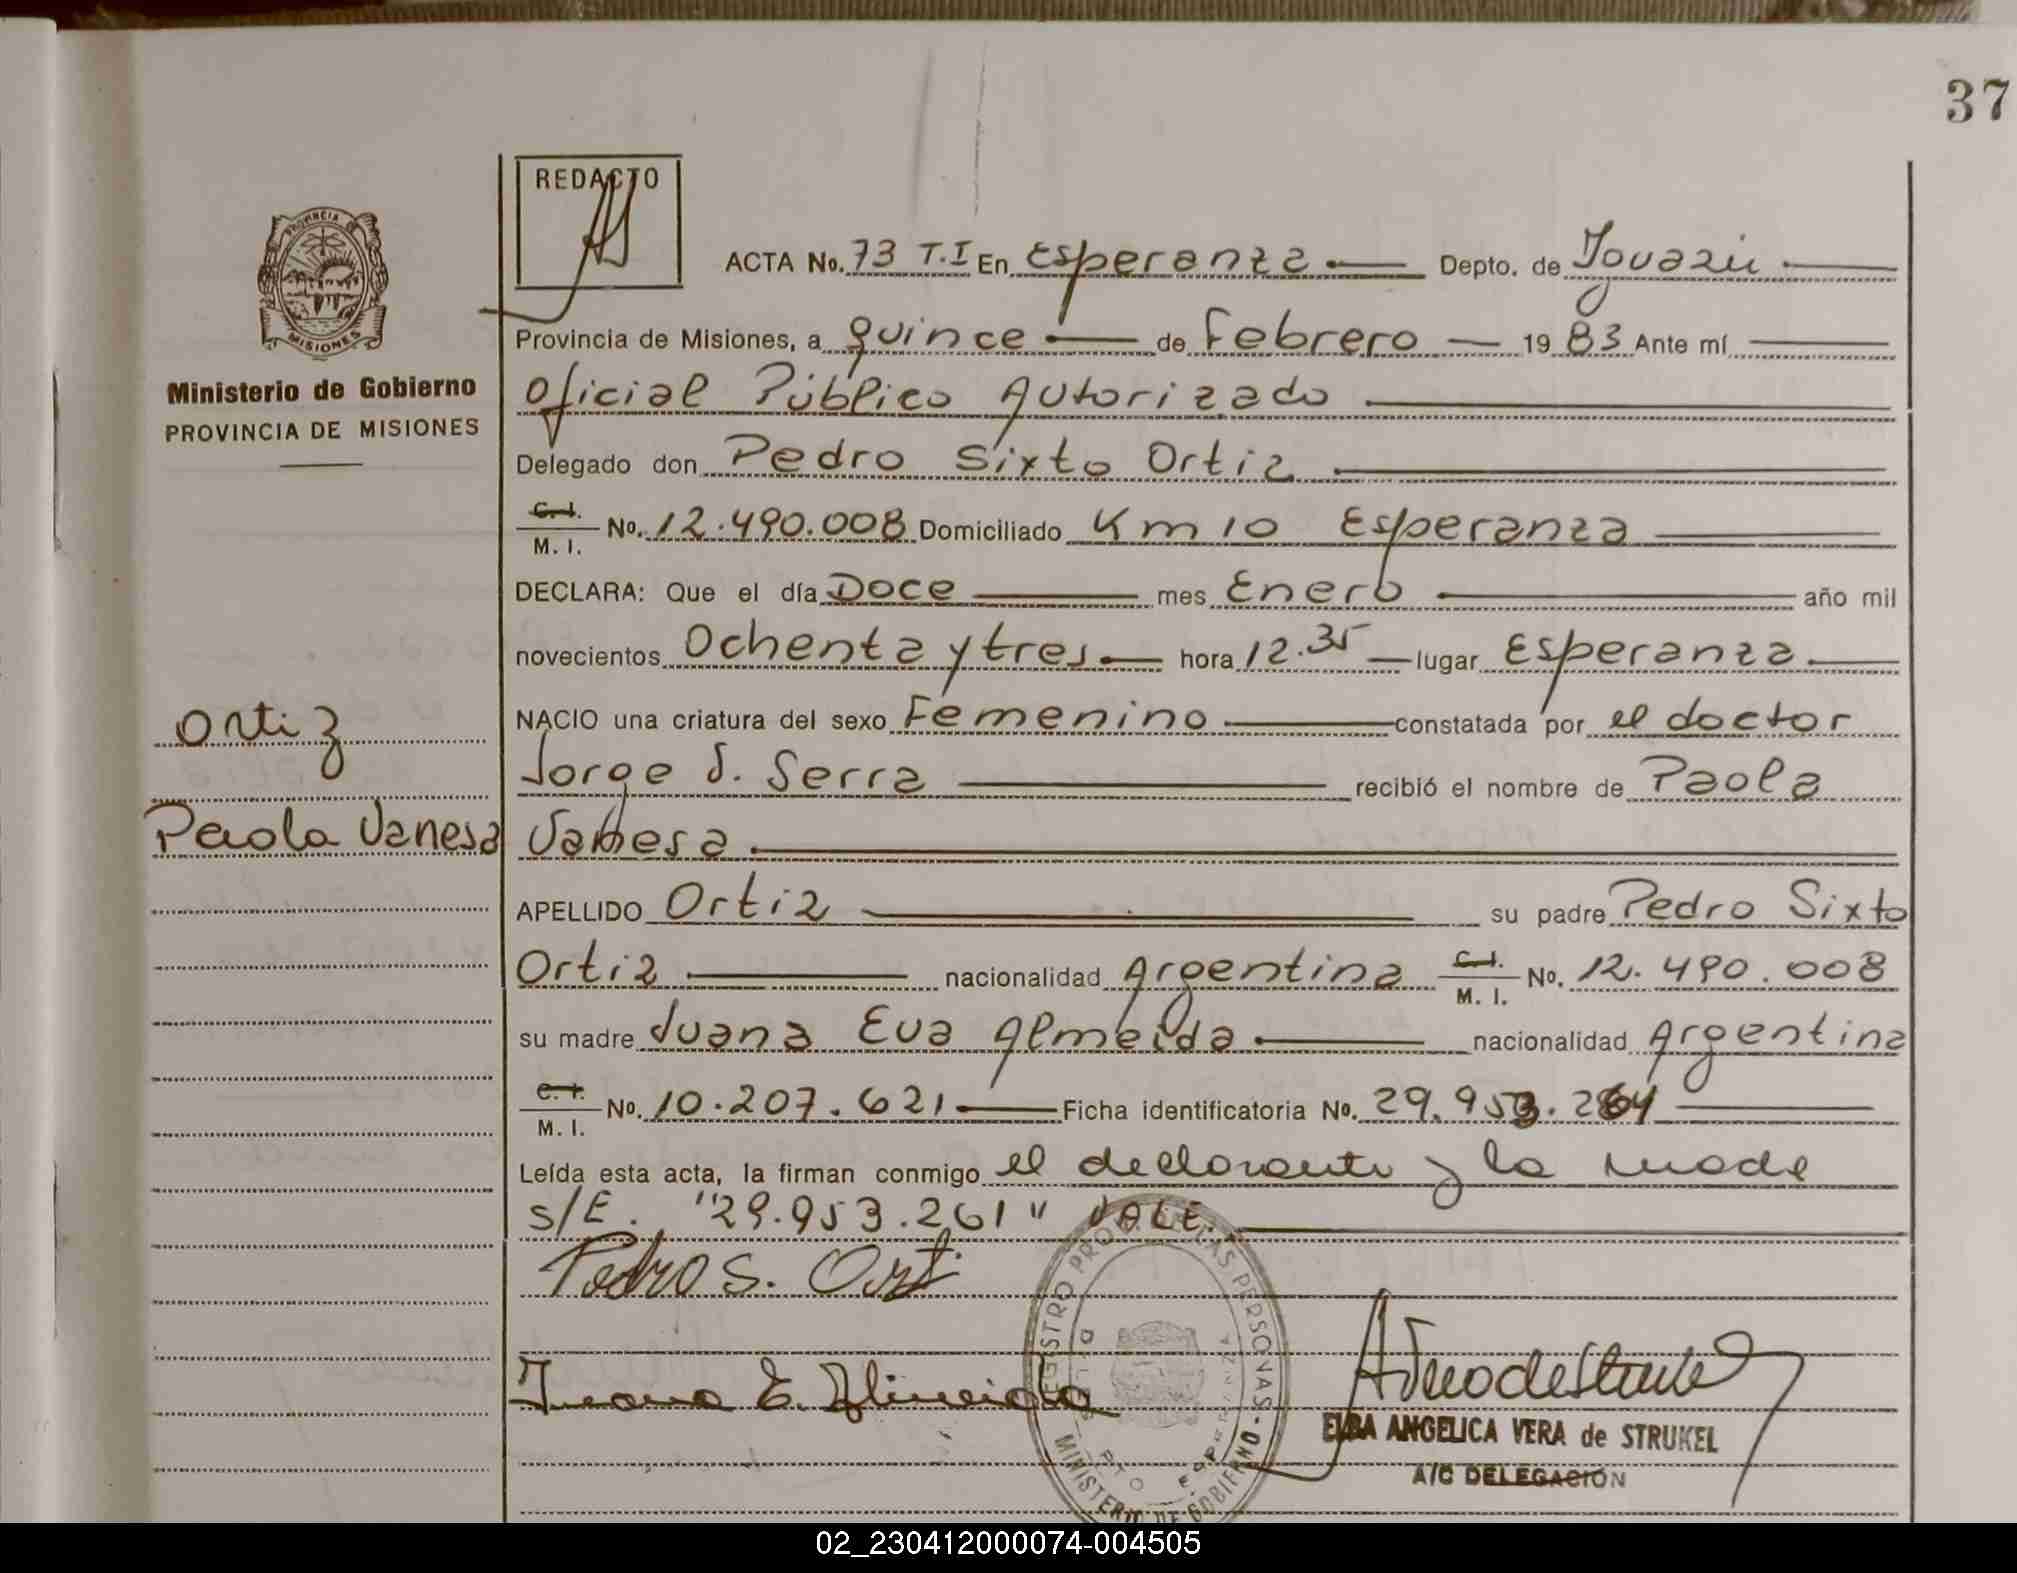 37
REDACTO
PROVINCIA DE
MISIONES
Ministerio de Gobierno
PROVINCIA DE MISIONES
ACTA No. 73 T.I En Esperanza Depto. de Iguazú
Provincia de Misiones, a quince de Febrero 1983 Ante mí
Oficial Público Autorizado
Delegado don Pedro Sixto Ortiz
C. I. M. I. No. 12.490.008 Domiciliado Km 10 Esperanza
DECLARA: Que el día Doce mes Enero año mil
novecientos Ochenta y tres hora 12.35 lugar Esperanza
Ortiz
NACIO una criatura del sexo Femenino constatada por el doctor
Jorge S. Serra recibió el nombre de Paola
Paola Vanesa
Vanesa
APELLIDO Ortiz su padre Pedro Sixto
Ortiz nacionalidad Argentina C. I. M. I. No. 12.490.008
su madre Juana Eva Almeida nacionalidad Argentina
C. I. M. I. No. 10.207.621 Ficha identificatoria No. 29.953.261
Leída esta acta, la firman conmigo el declarante y la madre
s/E. "29.953.261" VALE.
Pedro S. Orti
Juana E. Almeida
REGISTRO PROVINCIAL DE LAS PERSONAS
MINISTERIO DE GOBIERNO
ELBA ANGELICA VERA de STRUKEL
A/C DELEGACIÓN
02_230412000074-004505